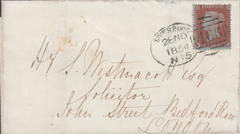 LIVERPOOL
2 NO
1854
N 15
Hy S. Westmacott Esq
Solicitor
John Street Bedford Row
London